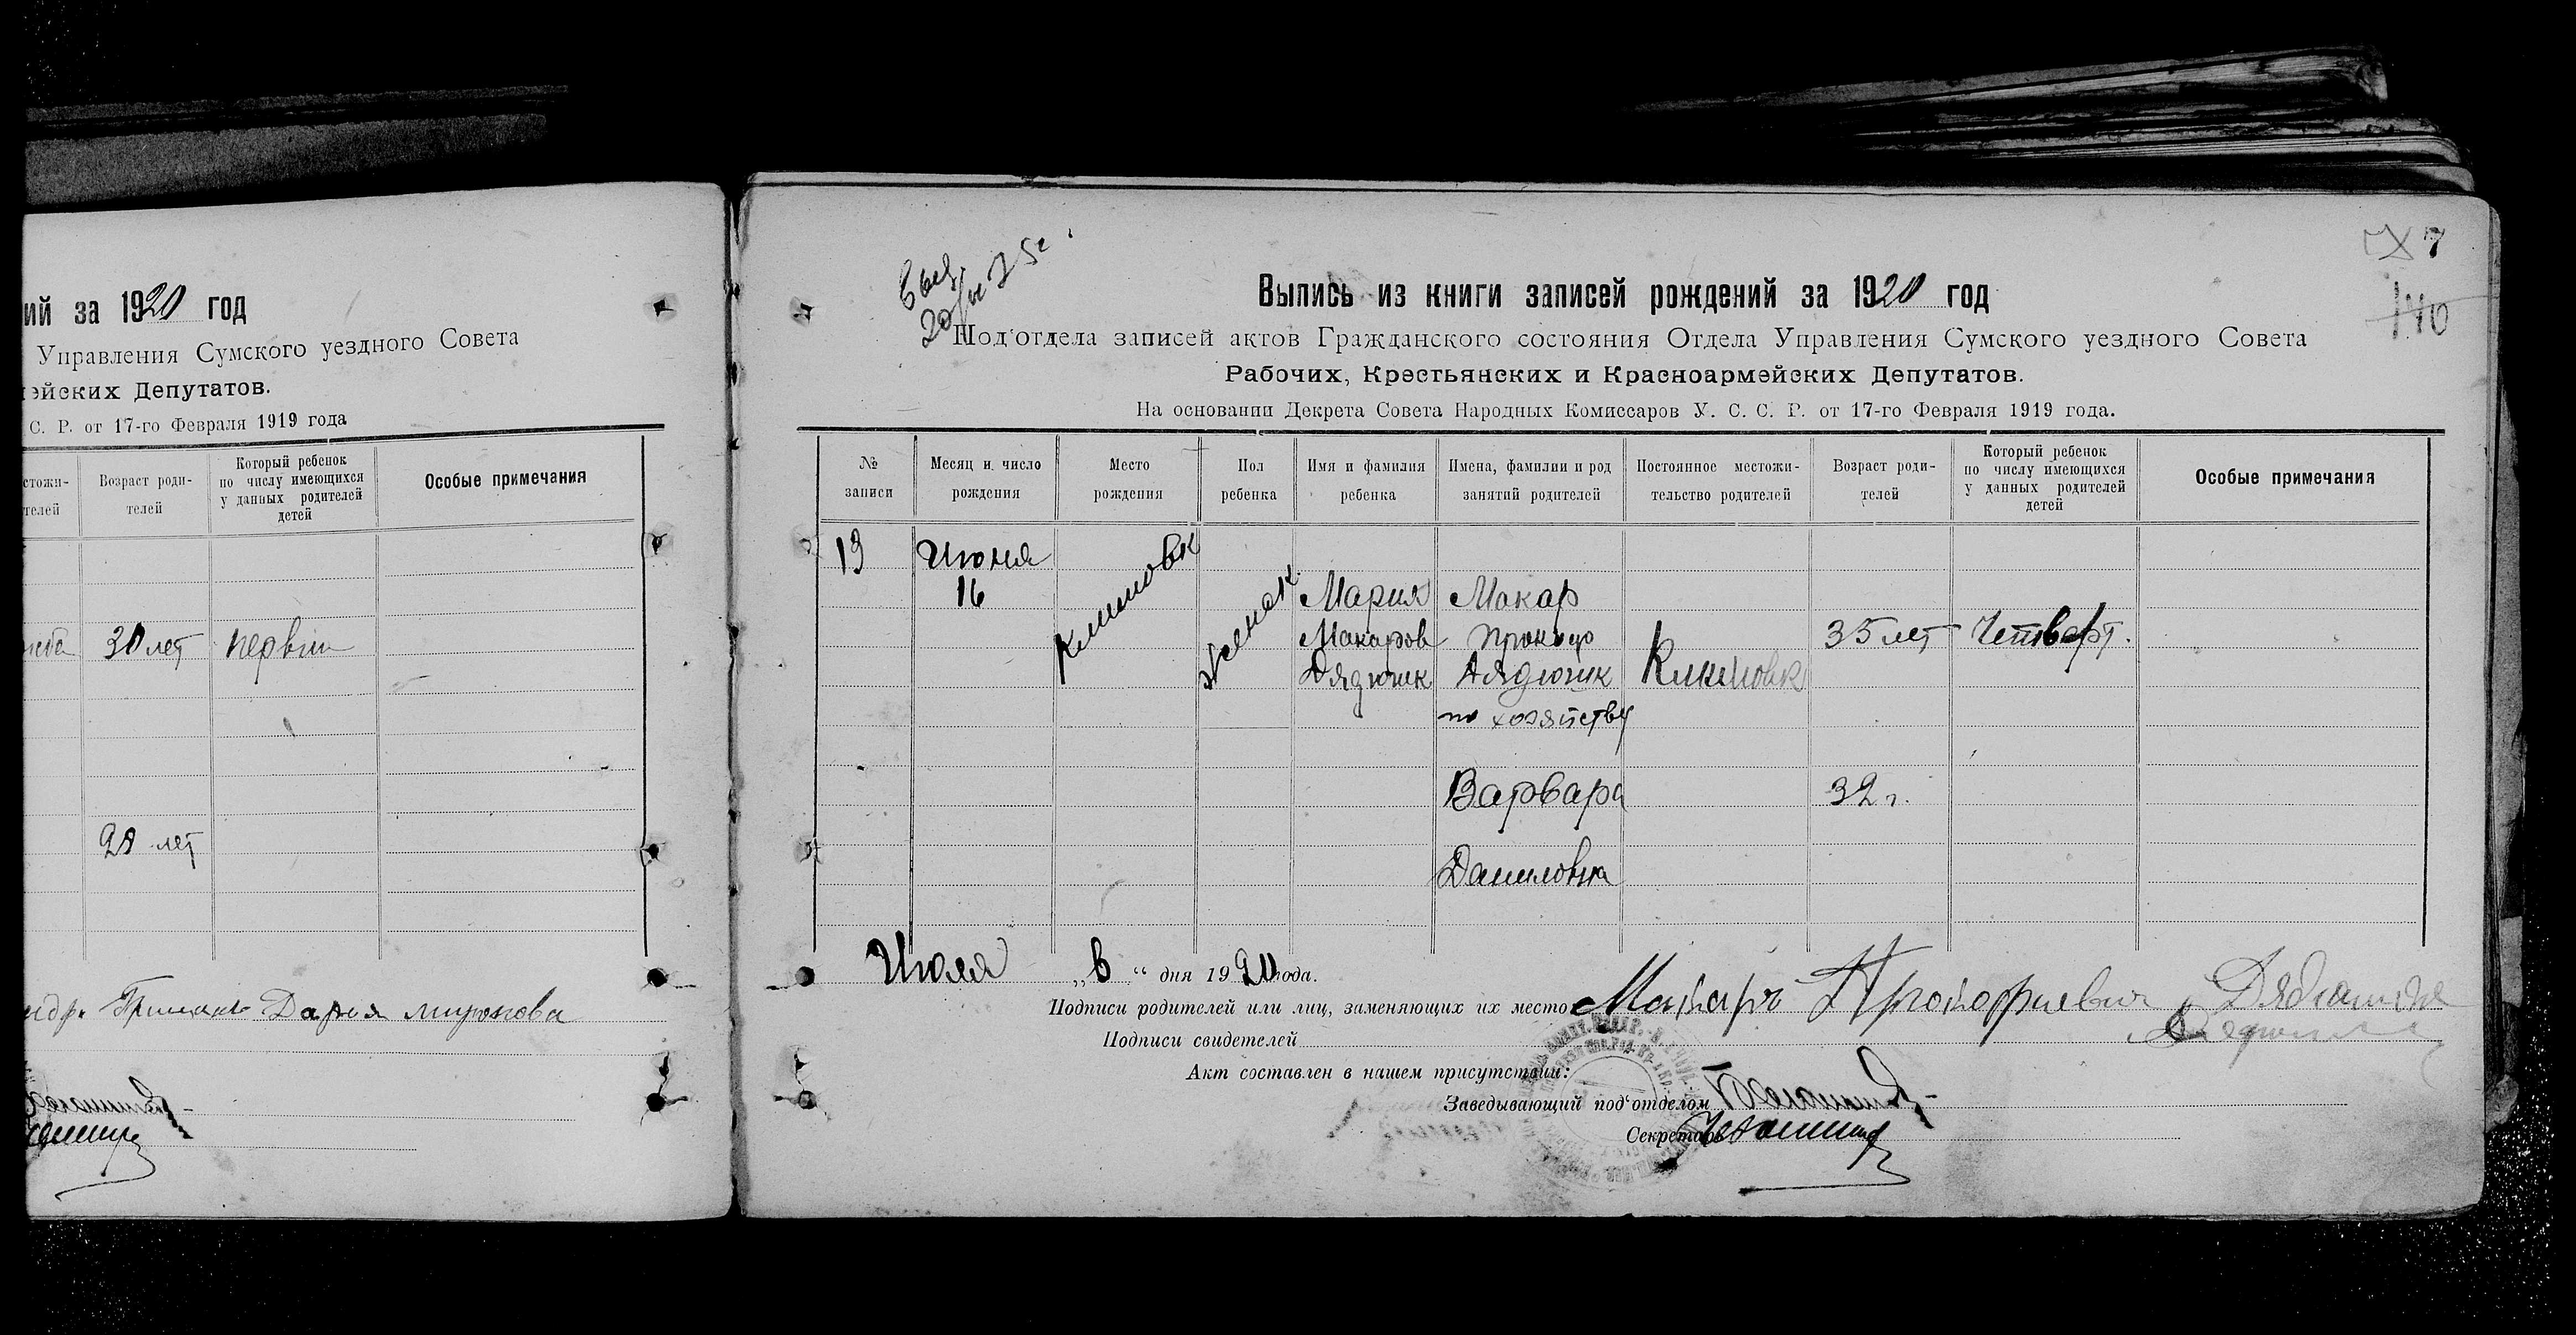 ий за 1920 год
Управления Сумского уездного Совета
ейских Депутатов.
С. Р. от 17-го Февраля 1919 года
Возраст роди-
телей
Который ребенок
по числу имеющихся
у данных родителей
детей
Особые примечания
30 лет первый
28 лет
Дария Миронова
7
140
Выпись из книги записей рождений за 1920 год
Под'отдела записей актов Гражданского состояния Отдела Управления Сумского уездного Совета
Рабочих, Крестьянских и Красноармейских Депутатов.
На основании Декрета Совета Народных Комиссаров У. С. С. Р. от 17-го Февраля 1919 года.
№
записи
Месяц и число
рождения
Место
рождения
Пол
ребенка
Имя и фамилия
ребенка
Имена, фамилии и род
занятий родителей
Постоянное местожи-
тельство родителей
Возраст роди-
телей
Который ребенок
по числу имеющихся
у данных родителей
детей
Особые примечания
13
Июня
16
Климовк
Женск.
Мария
Макаров
Дядюшк
Макар
Прокоф
Дядюшк
по хозяйству
Варвара
Даниловна
Климовк
35 лет
32 г.
Четверт.
Июля „6“ дня 1920 года.
Подписи родителей или лиц, заменяющих их место Макаръ Прокофиевич
Подписи свидетелей
Акт составлен в нашем присутствии:
Заведывающий под'отделом
Секретарь